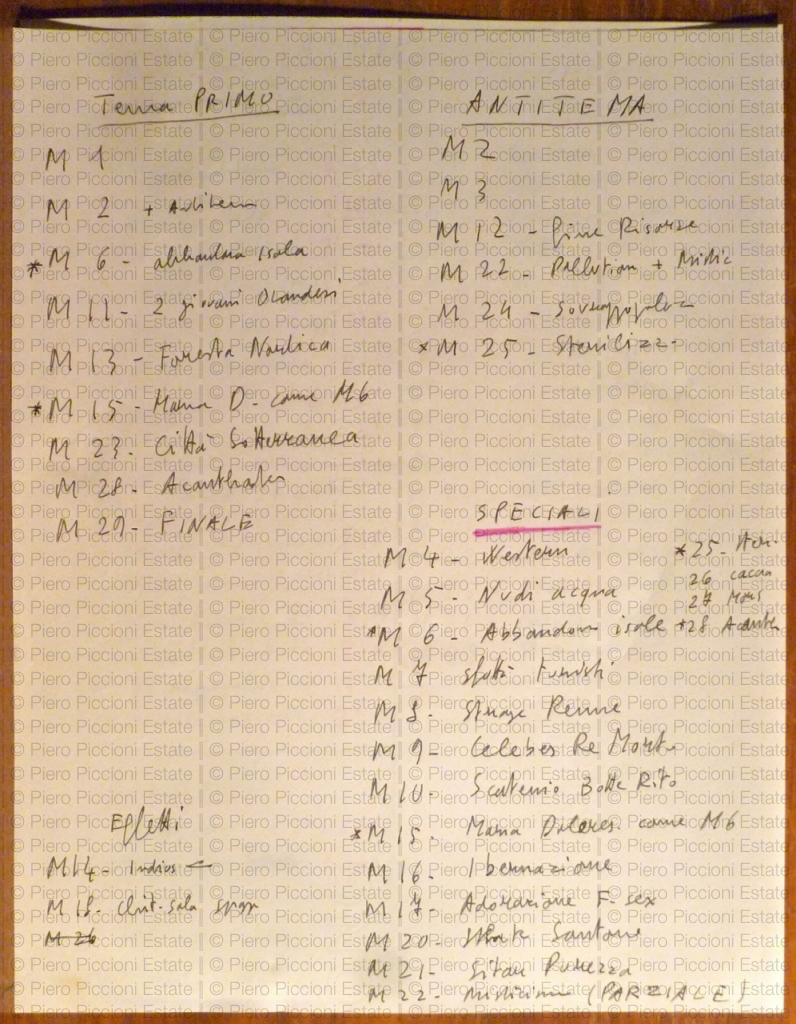 Tema PRIMO
M 1
M 2 + Antitema
* M 6 - abbandona isola
M 11 - 2 giovani Olandesi
M 13 - Foresta Nordica
* M 15 - Maria D - come M6
M 23 - Città Sotterranea
M 28 - Acanthates
M 29 - FINALE
ANTITEMA
M 2
M 3
M 12 - Fine Risorse
M 22 - Pollution + Mistic
M 24 - Sovrappopolaz
* M 25 - Sterilizz -
SPECIALI
M 4 - Western
M 5 - Nudi acqua
* M 6 - Abbandono isole
M 7 sfatti Turisti
M 8 - Strage Renne
M 9 - Celebes Re Morto
M 10 - Botte Rito
* M 15 - Maria Dolores come M6
M 16 - Ibernazione
M 17 - Adorazione F. sex
M 20 - Santone
M 21 - Sitar Purezza
M 22 - Misticismo (PARZIALE)
* 25 -
26 cacao
27
* 28 Acanth
Effetti
M 14 - Indios
M 18 - chit. sala
M 26
© Piero Piccioni Estate